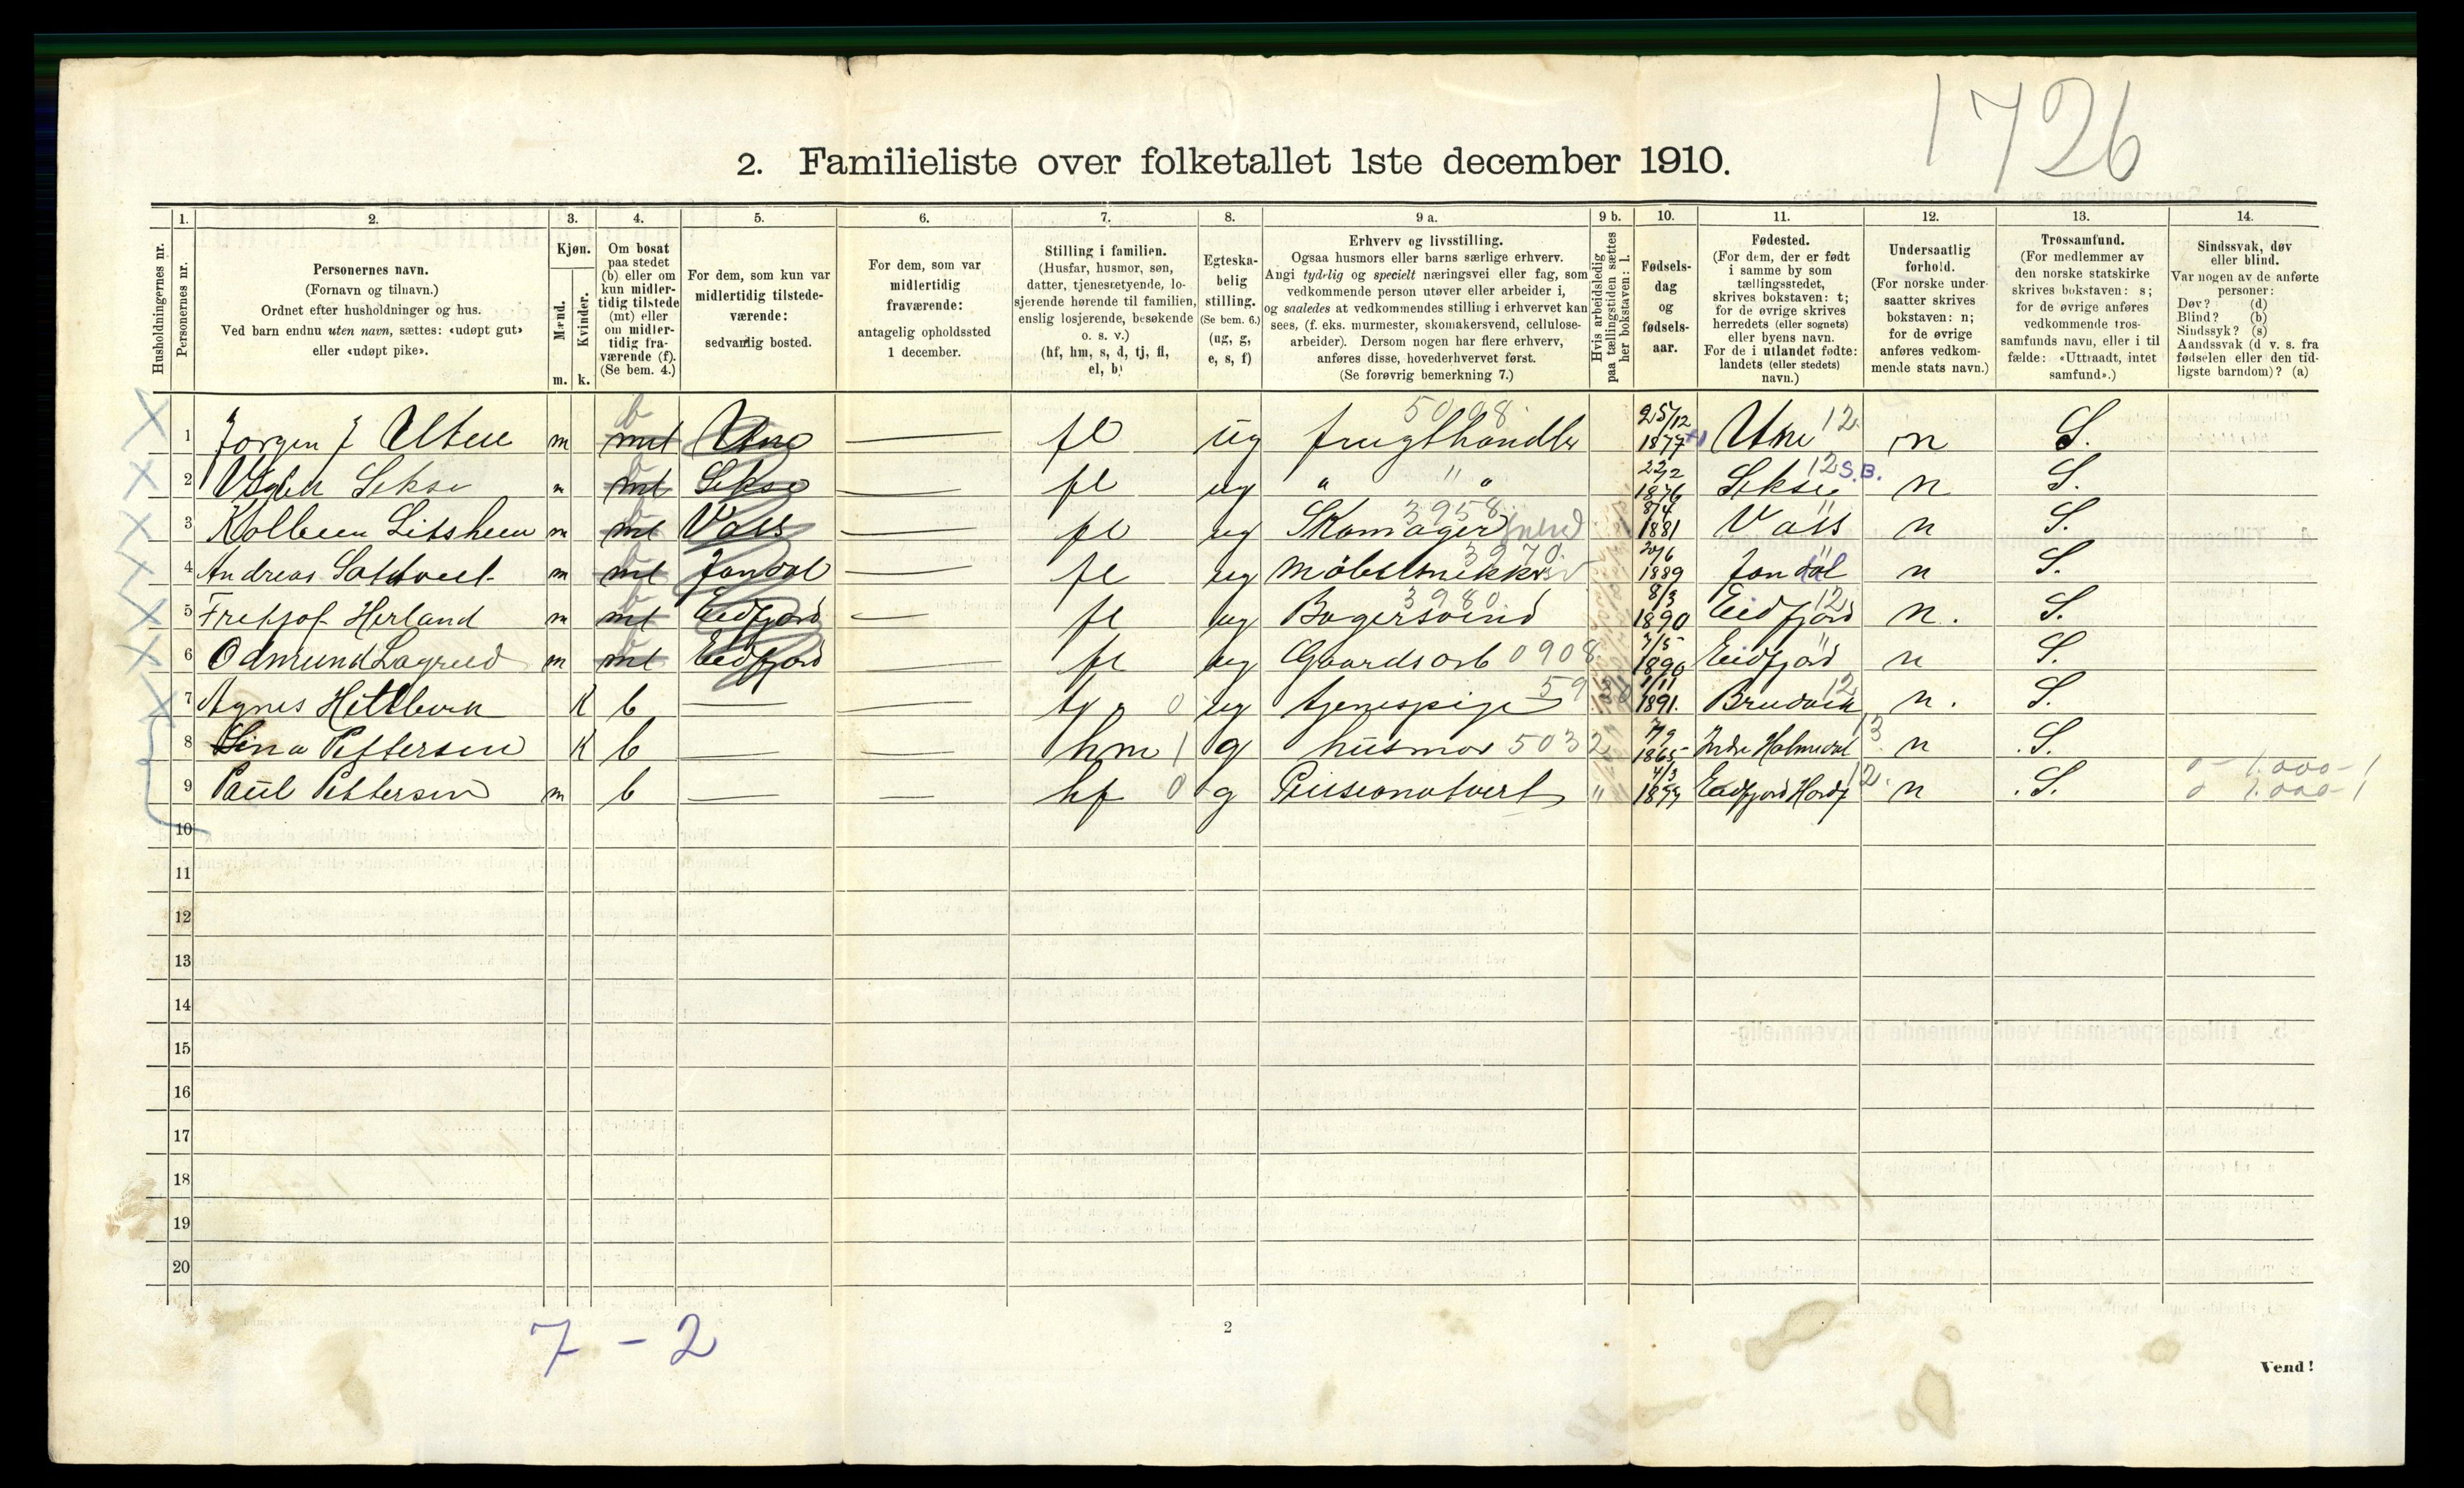 1726
2. Familieliste over folketallet 1ste december 1910.
1. 2. 3. 4. 5. 6. 7. 8. 9 a. 9 b. 10. 11. 12. 13. 14.
Husholdningernes nr.
Personernes nr.
Personernes navn.
(Fornavn og tilnavn.)
Ordnet efter husholdninger og hus.
Ved barn endnu uten navn, sættes: «udøpt gut»
eller «udøpt pike».
Kjøn.
Mænd.
Kvinder.
m. k.
Om bosat
paa stedet
(b) eller om
kun midler-
tidig tilstede
(mt) eller
om midler-
tidig fra-
værende (f).
(Se bem. 4.)
For dem, som kun var
midlertidig tilstede-
værende:
sedvanlig bosted.
For dem, som var
midlertidig
fraværende:
antagelig opholdssted
1 december.
Stilling i familien.
(Husfar, husmor, søn,
datter, tjenestetyende, lo-
sjerende hørende til familien,
enslig losjerende, besøkende
o. s. v.)
(hf, hm, s, d, tj, fl,
el, b)
Egteska-
belig
stilling.
(Se bem. 6.)
(ug, g,
e, s, f)
Erhverv og livsstilling.
Ogsaa husmors eller barns særlige erhverv.
Angi tydelig og specielt næringsvei eller fag, som
vedkommende person utøver eller arbeider i,
og saaledes at vedkommendes stilling i erhvervet kan
sees, (f. eks. murmester, skomakersvend, cellulose-
arbeider). Dersom nogen har flere erhverv,
anføres disse, hovederhvervet først.
(Se forøvrig bemerkning 7.)
Hvis arbeidsledig
paa tællingstiden sættes
her bokstaven: l.
Fødsels-
dag
og
fødsels-
aar.
Fødested.
(For dem, der er født
i samme by som
tællingsstedet,
skrives bokstaven: t;
for de øvrige skrives
herredets (eller sognets)
eller byens navn.
For de i utlandet fødte:
landets (eller stedets)
navn.)
Undersaatlig
forhold.
(For norske under-
saatter skrives
bokstaven: n;
for de øvrige
anføres vedkom-
mende stats navn.)
Trossamfund.
(For medlemmer av
den norske statskirke
skrives bokstaven: s;
for de øvrige anføres
vedkommende tros-
samfunds navn, eller i til
fælde: «Uttraadt, intet
samfund».)
Sindssvak, døv
eller blind.
Var nogen av de anførte
personer:
Døv? (d)
Blind? (b)
Sindssyk? (s)
Aandssvak (d. v. s. fra
fødselen eller den tid-
ligste barndom)? (a)
1 Jørgen J m b mt Utne fl ug frugthandler 5098 25/12 1877 Utne 12 n S.
2 Sekse m mt Sekse fl ug " " " 1876 Sekse 12 S.B. n S.
3 m mt Voss fl ug Skomager 3958 1881 Voss " n S.
4 Andreas m mt Jondal fl ug Møbelsnekker 3970 1889 Jondal n S.
5 Fretjof Herland m mt Eidfjord fl ug Bagersvend 3980 8/3 1890 Eidfjord 12 n. S.
6 Odmund Lagreid m mt Eidfjord fl ug Gaardsarb 0908 7/5 1890 Eidfjord " n S.
7 Agnes k b 0 ug tjenespige 1/11 1891. Bruvik 12 n. S.
8 Lina Pettersen k b hm 1 g husmor 5032 1865 Indre Holmedal 13 n S.
9 Paul Pettersen m b hf 0 g Pensionatvert " 4/3 1877 Eidfjord Hardf 12. n S.
0 - 1.000 - 1
0 1.000 - 1
10
11
12
13
14
15
16
17
18
19
20
7 - 2
2
Vend!